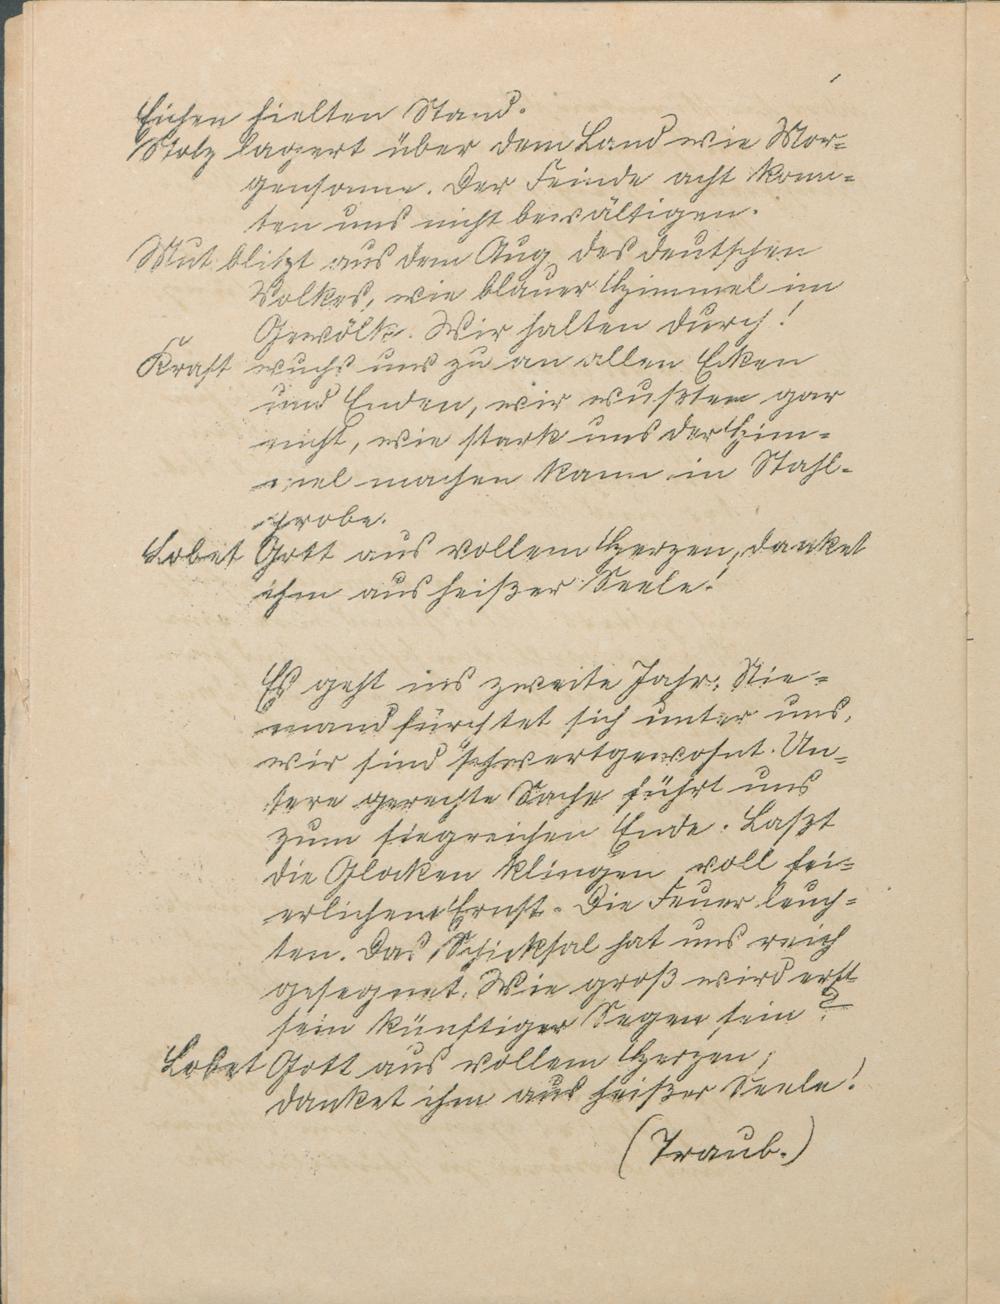 Eichen hielten Stand.
Stolz lagert über dem Land wie Mor-
gensonne. Der Feinde acht konn-
ten uns nicht bewältigen.
Mut blitzt aus dem Aug des deutschen
Volkes, wie blauer Himmel im
Gewölk. Wir halten durch!
Kraft wuchs uns zu an allen Ecken
und Enden, wir wußten gar
nicht, wie stark uns der Him-
mel machen kann in Stahl-
probe.
Lobet Gott aus vollem Herzen, danket
ihm aus heißer Seele!
Es geht ins zweite Jahr. Nie-
mand fürchtet sich unter uns,
wir sind schwertgewohnt. Un-
sere gerechte Sache führt uns
zum siegreichen Ende. Laszt
die Glocken klingen voll fei-
erlichem Ernst. Die Feuer leuch-
ten. Das Schicksal hat uns reich
gesegnet. Wie groß wird erst
sein künftiger Segen sein?
Lobet Gott aus vollem Herzen;
danket ihm aus heißer Seele!
(Traub.)